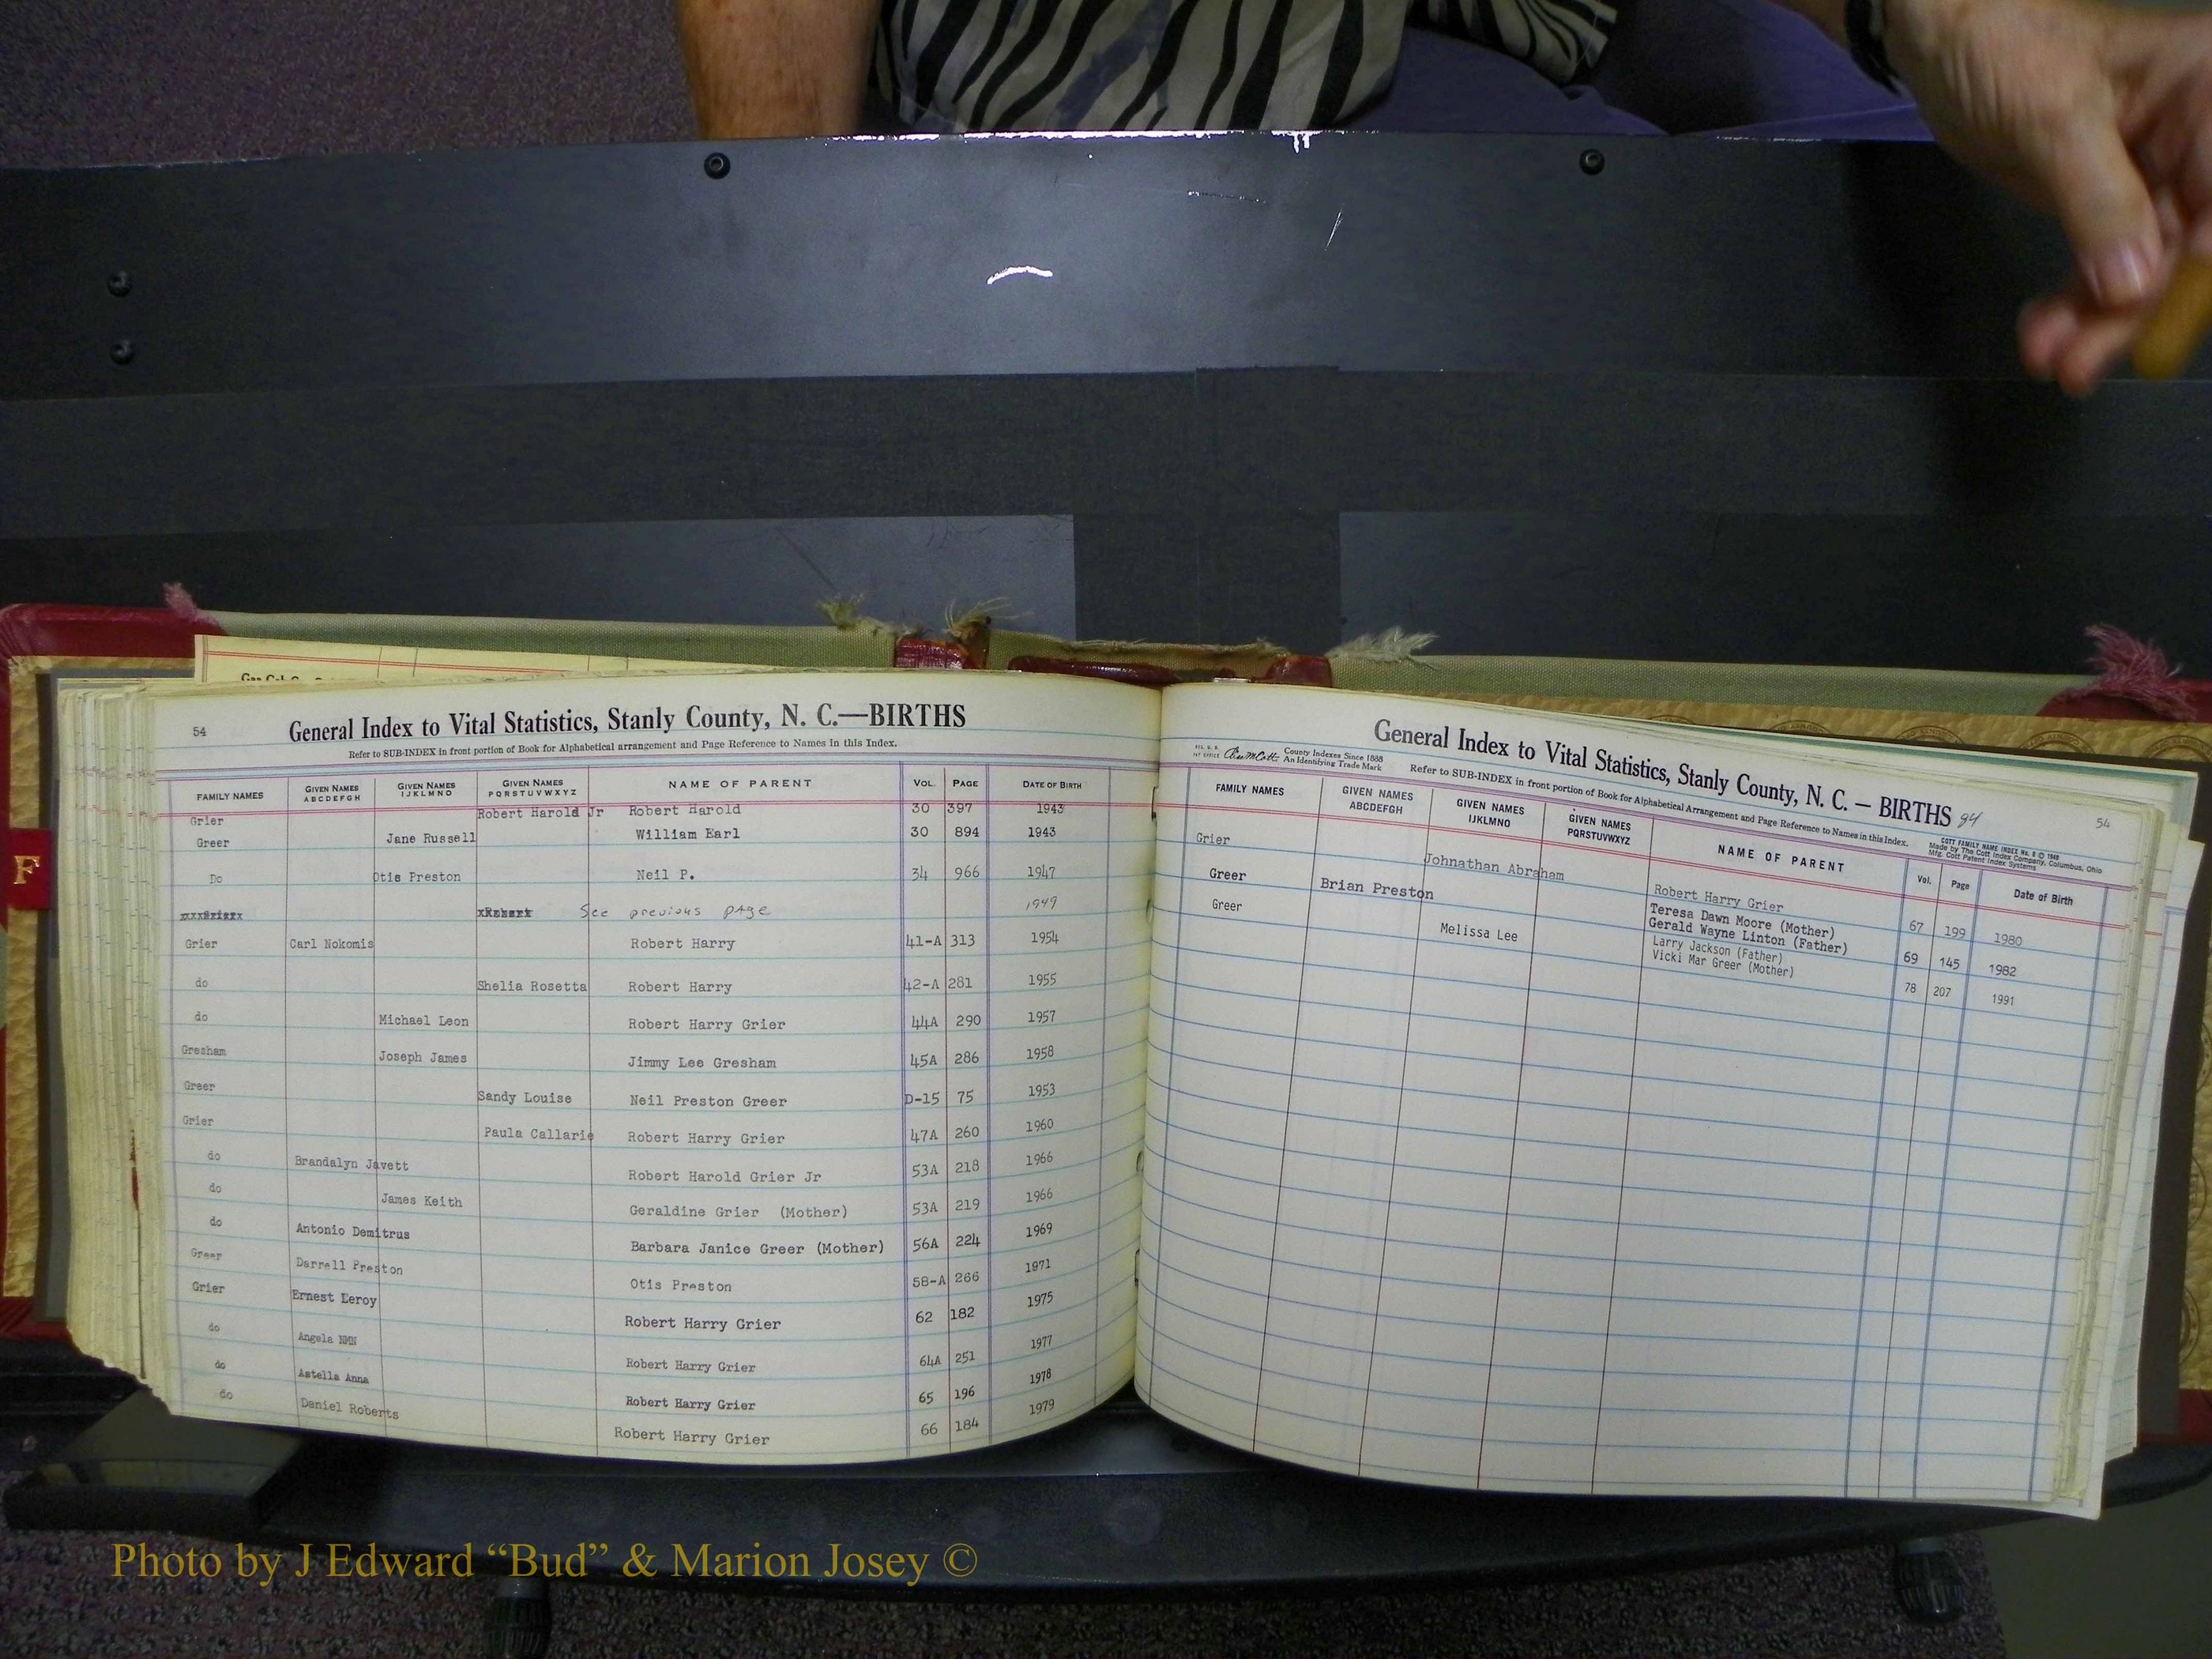 54
General Index to Vital Statistics, Stanly County, N. C.—BIRTHS
Refer to SUB-INDEX in front portion of Book for Alphabetical arrangement and Page Reference to Names in this Index.
FAMILY NAMES GIVEN NAMES ABCDEFGH GIVEN NAMES IJKLMNO GIVEN NAMES PQRSTUVWXYZ NAME OF PARENT VOL. PAGE DATE OF BIRTH
Grier Robert Harold Jr Robert Harold 30 397 1943
Greer Jane Russell William Earl 30 894 1943
Do Otis Preston Neil P. 34 966 1947
See previous page 1949
Grier Carl Nokomis Robert Harry 41-A 313 1954
do Shelia Rosetta Robert Harry 42-A 281 1955
do Michael Leon Robert Harry Grier 44A 290 1957
Gresham Joseph James Jimmy Lee Gresham 45A 286 1958
Greer Sandy Louise Neil Preston Greer D-15 75 1953
Grier Paula Callarie Robert Harry Grier 47A 260 1960
do Brandalyn Javett Robert Harold Grier Jr 53A 218 1966
do James Keith Geraldine Grier (Mother) 53A 219 1966
do Antonio Demitrus Barbara Janice Greer (Mother) 56A 224 1969
Greer Darrell Preston Otis Preston 58-A 266 1971
Grier Ernest Leroy Robert Harry Grier 62 182 1975
do Angela NMN Robert Harry Grier 64A 251 1977
do Astella Anna Robert Harry Grier 65 196 1978
do Daniel Roberts Robert Harry Grier 66 184 1979
F
General Index to Vital Statistics, Stanly County, N. C. — BIRTHS 94
54
County Indexes Since 1888
An Identifying Trade Mark
Refer to SUB-INDEX in front portion of Book for Alphabetical Arrangement and Page Reference to Names in this Index.
COTT FAMILY NAME INDEX No. 8 © 1948
Made by The Cott Index Company, Columbus, Ohio
Mfg. Cott Patent Index Systems
FAMILY NAMES GIVEN NAMES ABCDEFGH GIVEN NAMES IJKLMNO GIVEN NAMES PQRSTUVWXYZ NAME OF PARENT Vol. Page Date of Birth
Grier Johnathan Abraham Robert Harry Grier 67 199 1980
Greer Brian Preston Teresa Dawn Moore (Mother)
Gerald Wayne Linton (Father) 69 145 1982
Greer Melissa Lee Larry Jackson (Father)
Vicki Mar Greer (Mother) 78 207 1991
Photo by J Edward “Bud” & Marion Josey ©